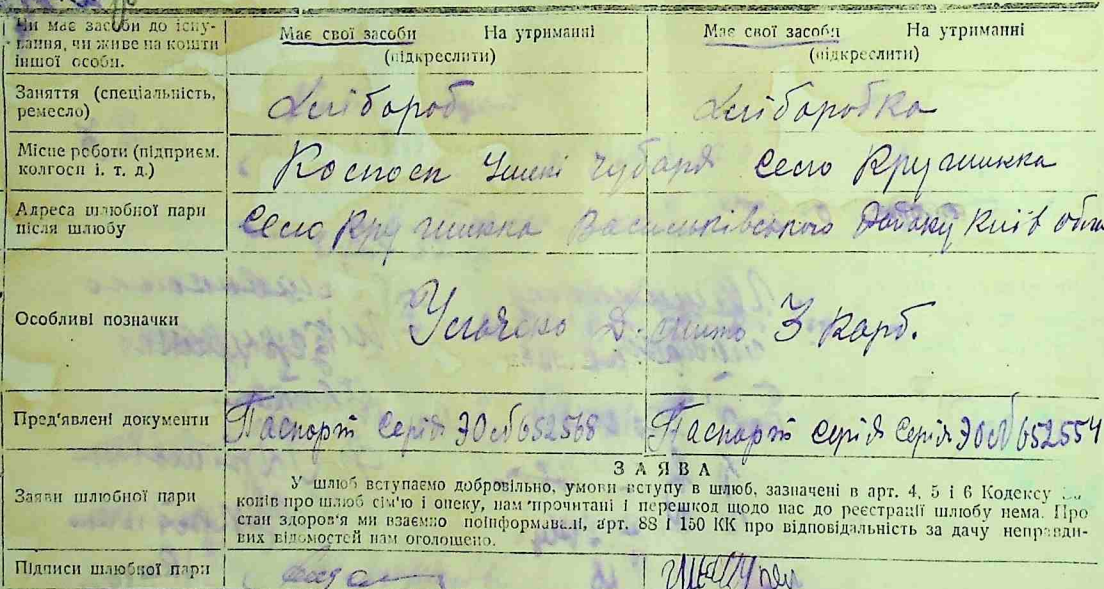 Чи має засоби до існу-
вання, чи живе на кошти
іншої особи.
Має свої засоби На утриманні
(підкреслити)
Має свої засоби На утриманні
(підкреслити)
Заняття (спеціальність,
ремесло)
Хлібороб
Хліборобка
Місце роботи (підприєм.
колгосп і. т. д.)
Чубаря Село Кругликка
Адреса шлюбної пари
після шлюбу
Село Васильківського Київ обл
Особливі позначки
мито 3 карб.
Пред'явлені документи
Паспорт серія ЭО № 652568
Паспорт серія серія ЭО № 652554
Заяви шлюбної пари
ЗАЯВА
У шлюб вступаємо добровільно, умови вступу в шлюб, зазначені в арт. 4, 5 і 6 Кодексу За-
конів про шлюб сім'ю і опеку, нам прочитані і перешкод щодо нас до реєстрації шлюбу нема. Про
стан здоров'я ми взаємно поінформовані, арт. 88 і 150 КК про відповідальність за дачу неправди-
вих відомостей нам оголошено.
Підписи шлюбної пари